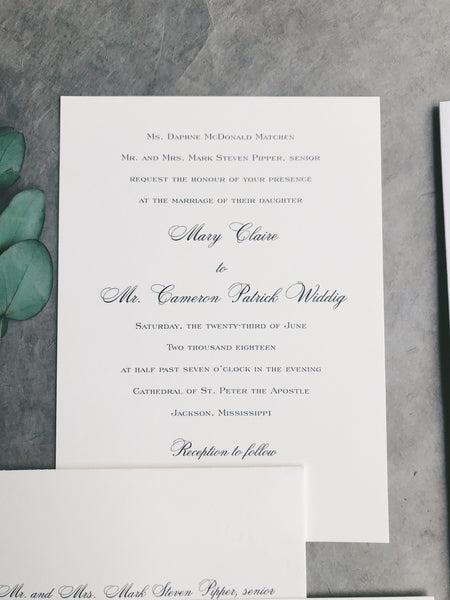 Ms. Daphne McDonald Matchen
Mr. and Mrs. Mark Steven Pipper, senior
request the honour of your presence
at the marriage of their daughter
Mary Claire
to
Mr. Cameron Patrick Widdig
Saturday, the twenty-third of June
Two thousand eighteen
at half past seven o'clock in the evening
Cathedral of St. Peter the Apostle
Jackson, Mississippi
Reception to follow
Mr. and Mrs. Mark Steven Pipper, senior